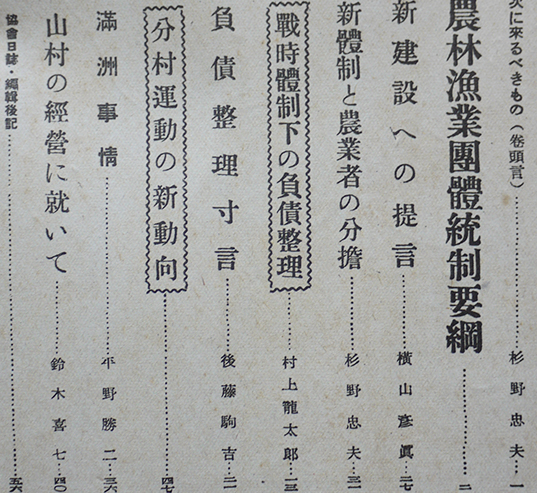 次に來るべきもの（卷頭言）…杉野忠夫…一
農林漁業團體統制要綱…二
新建設への提言…橫山彦眞…二七
新體制と農業者の分擔…杉野忠夫…三一
戰時體制下の負債整理…村上龍太郎…一三
負債整理寸言…後藤駒吉…二一
分村運動の新動向…四七
滿洲事情…平野勝二…三六
山村の經營に就いて…鈴木喜七…四〇
協會日誌・編輯後記…五六